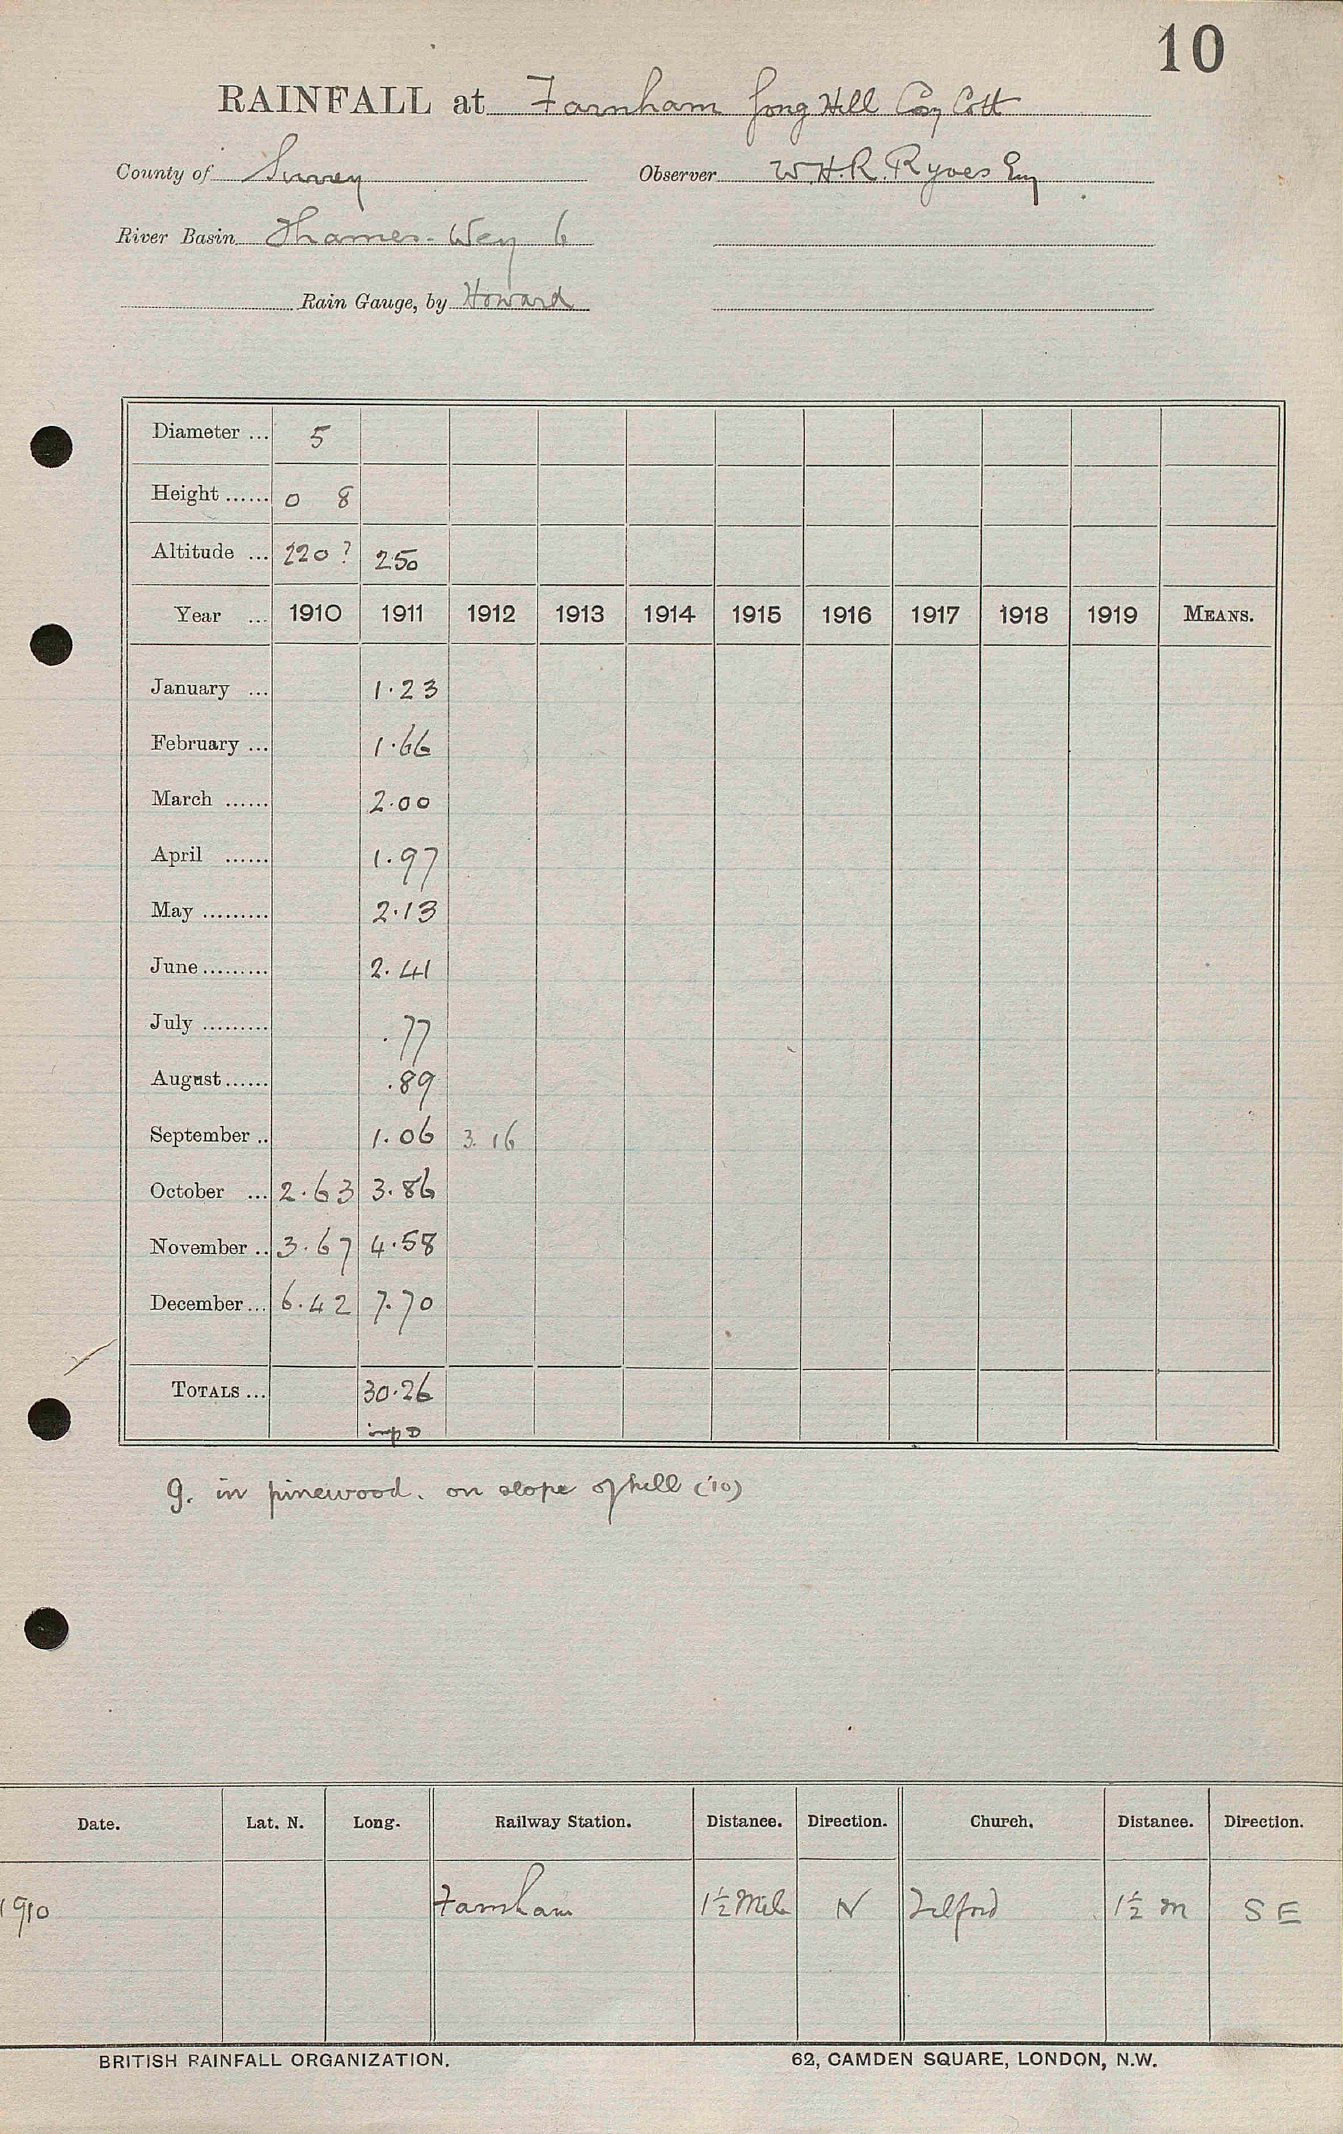 10
RAINFALL at Farnham Long Hill Cosy Cott
County of Surrey Observer W.H.R. Ryves Esq
River Basin Thames - Wey 6
Rain Gauge, by Howard
Diameter ... 5
Height ...... 0 8
Altitude ... 220 ? 250
Year ... 1910 1911 1912 1913 1914 1915 1916 1917 1918 1919 MEANS.
January ... 1.23
February ... 1.66
March ...... 2.00
April ...... 1.97
May ......... 2.13
June ......... 2.41
July ......... .77
August ...... .89
September .. 1.06 3.16
October ... 2.63 3.86
November .. 3.67 4.58
December ... 6.42 7.70
TOTALS ... 30.26
imp D
g. in pinewood. on slope of hill ('10)
Date. Lat. N. Long. Railway Station. Distance. Direction. Church. Distance. Direction.
1910 Farnham 1½ Mile N Tilford 1½ m S E
BRITISH RAINFALL ORGANIZATION. 62, CAMDEN SQUARE, LONDON, N.W.